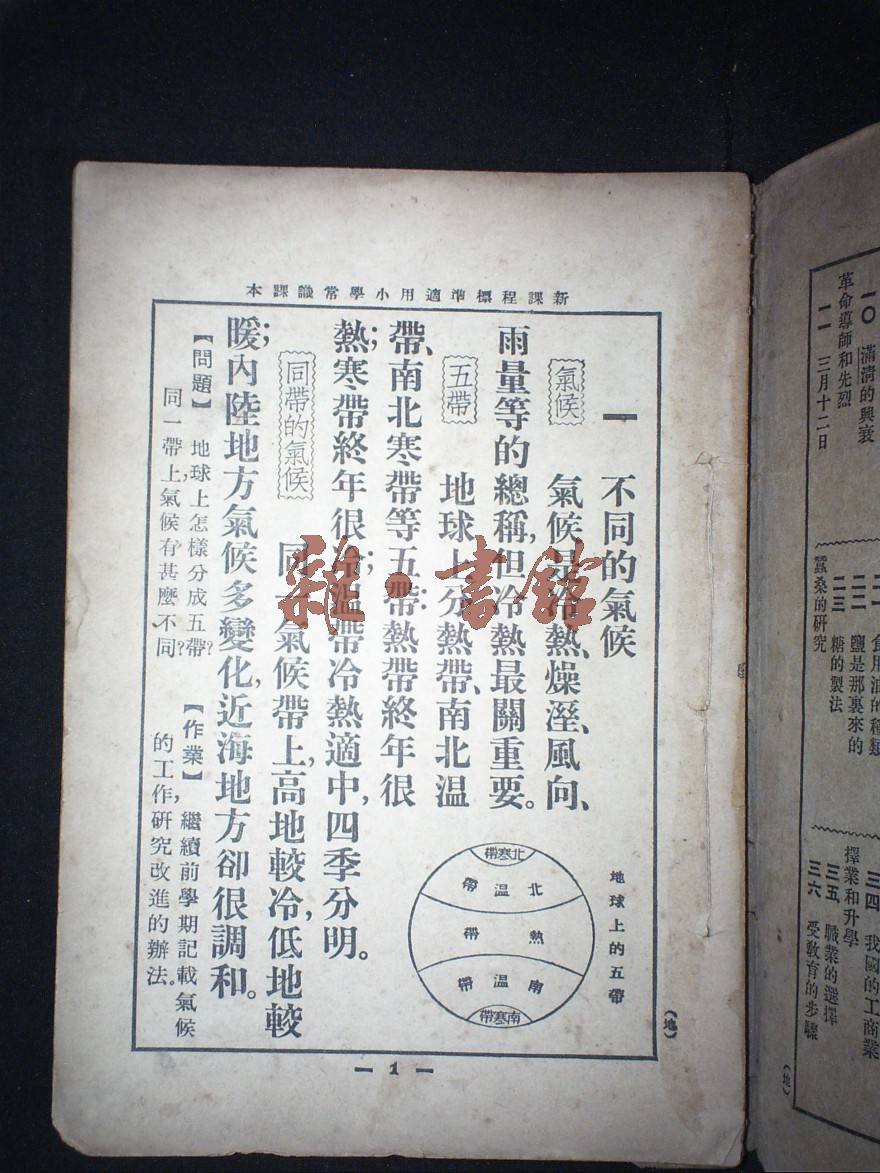 新課程標準適用小學常識課本
一 不同的氣候
氣候
氣候是冷熱、燥溼、風向、
雨量等的總稱，但冷熱最關重要。
五帶
地球上分熱帶、南北溫
帶、南北寒帶等五帶：熱帶終年很
熱；寒帶終年很冷；溫帶冷熱適中，四季分明。
同帶的氣候
同一氣候帶上，高地較冷，低地較
暖；內陸地方氣候多變化，近海地方卻很調和。
【問題】 地球上怎樣分成五帶？
同一帶上，氣候有甚麼不同？
【作業】 繼續前學期記載氣候
的工作，研究改進的辦法。
地球上的五帶
北寒帶
北溫帶
熱帶
南溫帶
南寒帶
（地）
— 1 —
雜·書館
一〇 滿清的興衰
革命導師和先烈
一一 三月十二日
食用油的種類
二二 鹽是那裏來的
二三 糖的製法
蠶桑的研究
三四 我國的工商業
擇業和升學
三五 職業的選擇
三六 受教育的步驟
（地）